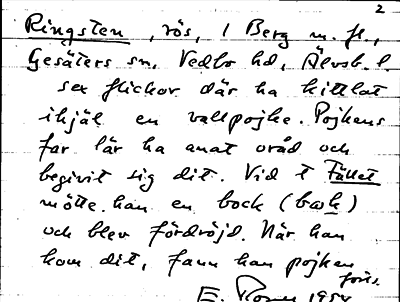 2
Ringsten, rös, i Berg m. fl.,
Gesäters sn, Vedbo hd, Älvsb. l.
sex flickor där ha kittlat
ihjäl en vallpojke. Pojkens
far lär ha anat oråd och
begivit sig dit. Vid t Fället
mötte han en bock (bɷk)
och blev fördröjd. När han
kom dit, fann han pojken
förs.
E. 1954